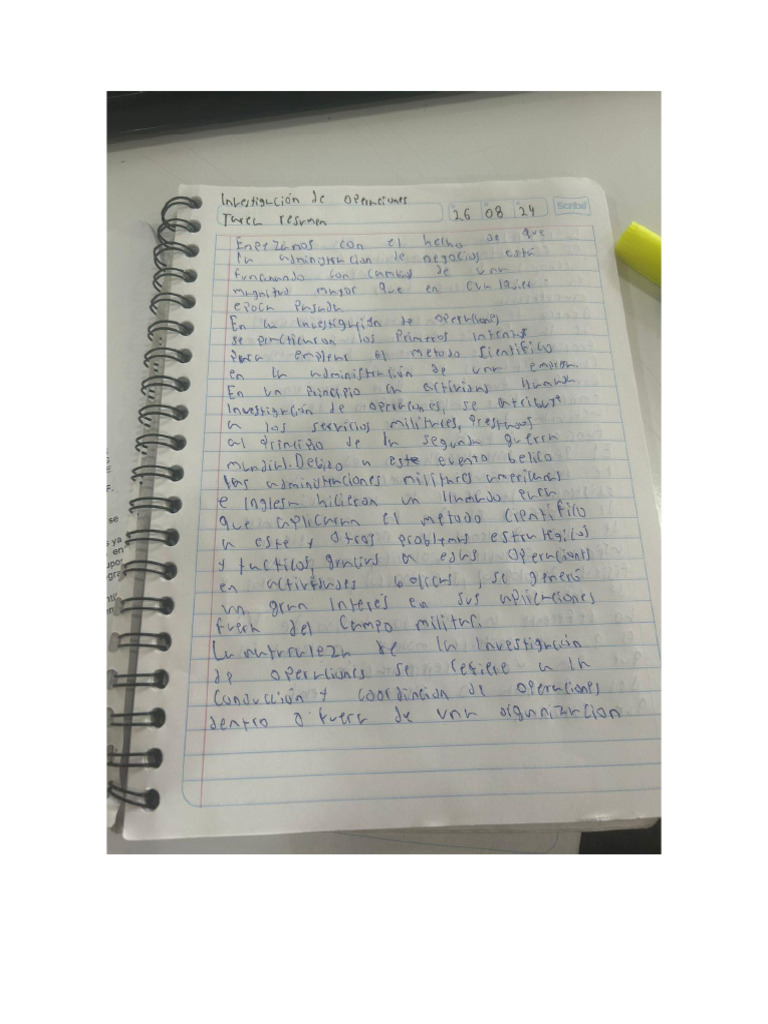 Investigación de operaciones
Tarea resumen
26 08 24
Scribe
Empezamos con el hecho de que
la administracion de negocios está
funcionando con cambios de una
magnitud mayor que en cualquier
epoca pasada
En la investigación de operaciones
se practicaron los primeros intentos
para emplear el metodo Científico
en la administración de una empresa.
En un principio la actividad llamada
investigación de operaciones, se atribuye
a los servicios militares, prestados
al principio de la segunda guerra
mundial. Debido a este evento belico
las administraciones militares americanas
e inglesa hicieron un llamado para
que aplicaran el metodo científico
a este y otros problemas estrategicos
y tacticos, gracias a esas operaciones
en actividades belicas, se generó
un gran interes en sus aplicaciones
fuera del campo militar.
La naturaleza de la investigación
de operaciones se refiere a la
conducción y coordinacion de operaciones
dentro o fuera de una organizacion